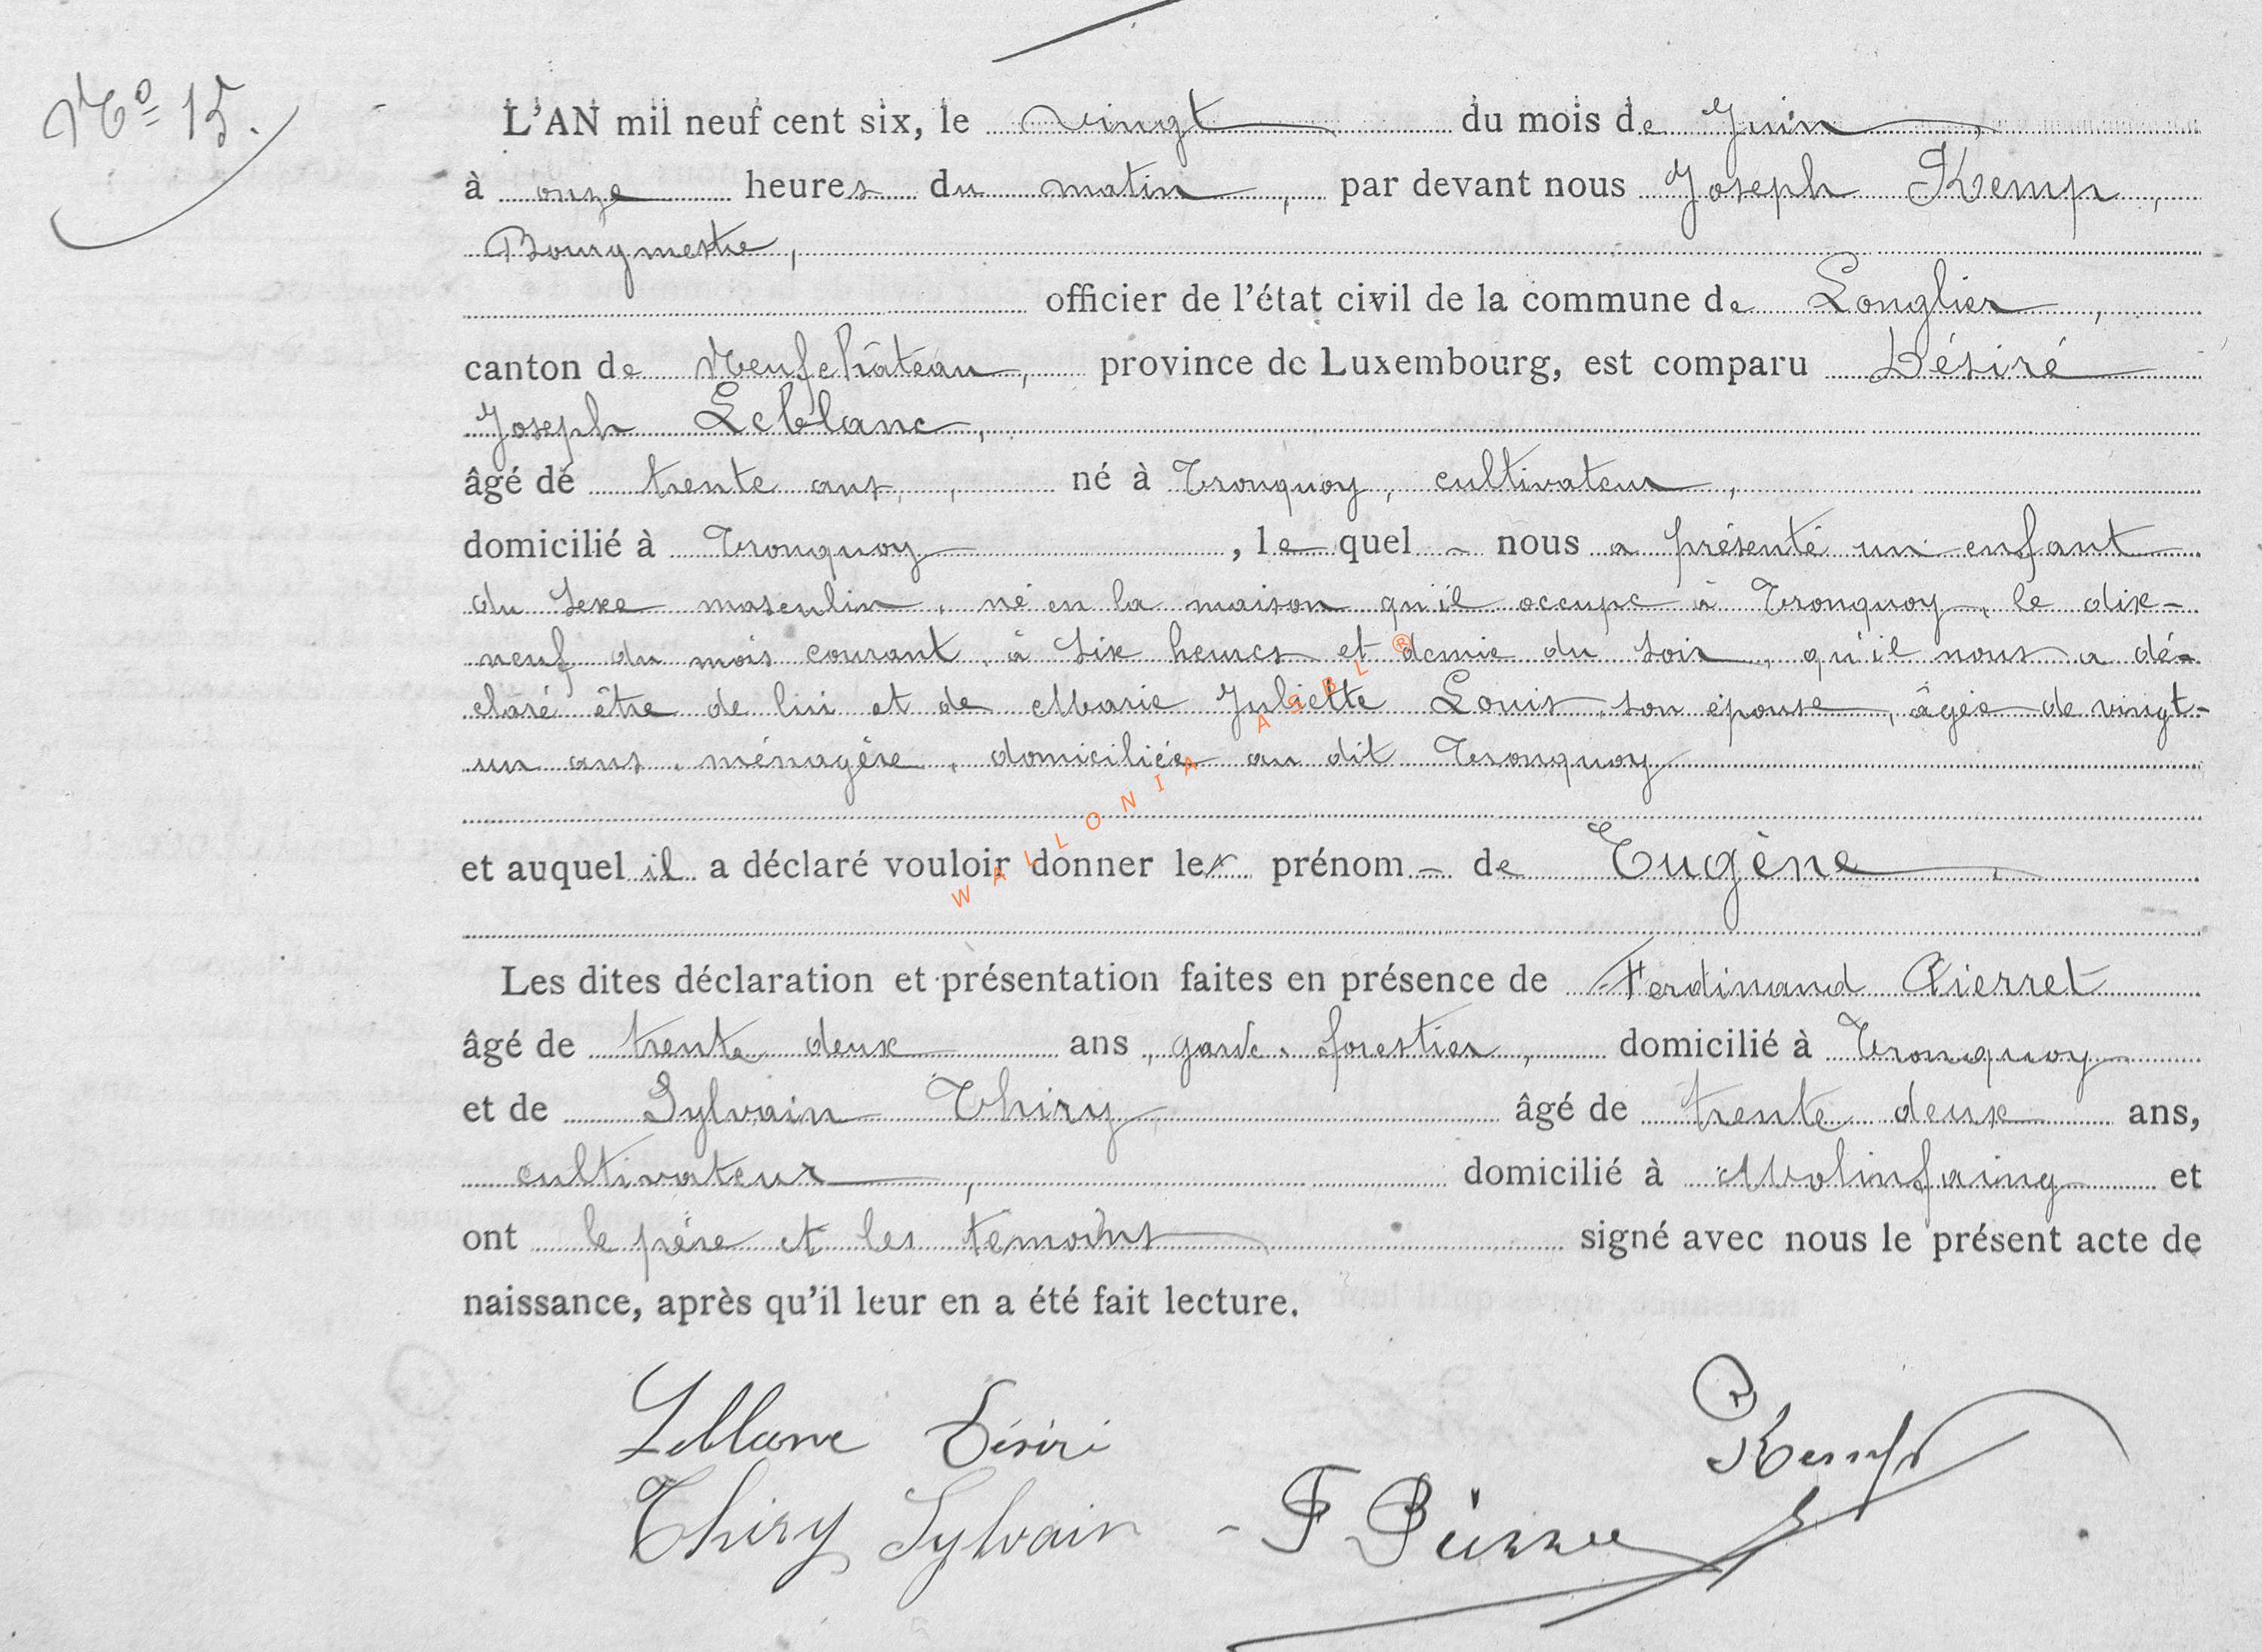 Nº 15.
L'AN mil neuf cent six, le vingt du mois de Juin,
à onze heures du matin, par devant nous Joseph Kemp,
Bourgmestre,
officier de l'état civil de la commune de Longlier,
canton de Neufchâteau, province de Luxembourg, est comparu Désiré
Joseph Leblanc,
âgé de trente ans, né à Tronquoy, cultivateur,
domicilié à Tronquoy, le quel - nous a présenté un enfant
du sexe masculin, né en la maison qu'il occupe à Tronquoy, le dix-
neuf du mois courant, à six heures et demie du soir, qu'il nous a dé-
claré être de lui et de Marie Juliette Louis son épouse, âgée de vingt-
un ans, ménagère, domiciliée au dit Tronquoy
et auquel il a déclaré vouloir donner les prénom - de Eugène,
Les dites déclaration et présentation faites en présence de Ferdinand Pierret
âgé de trente deux ans, garde-forestier, domicilié à Tronquoy
et de Sylvain Thiry âgé de trente deux ans,
cultivateur, domicilié à Molinfaing et
ont le père et les témoins signé avec nous le présent acte de
naissance, après qu'il leur en a été fait lecture.
Leblanc Désiré
Kemp
Thiry Sylvain - F Pierret
WALLONIA ASBL ®